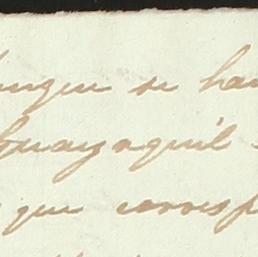 se ha
Guayaquil
que corresp